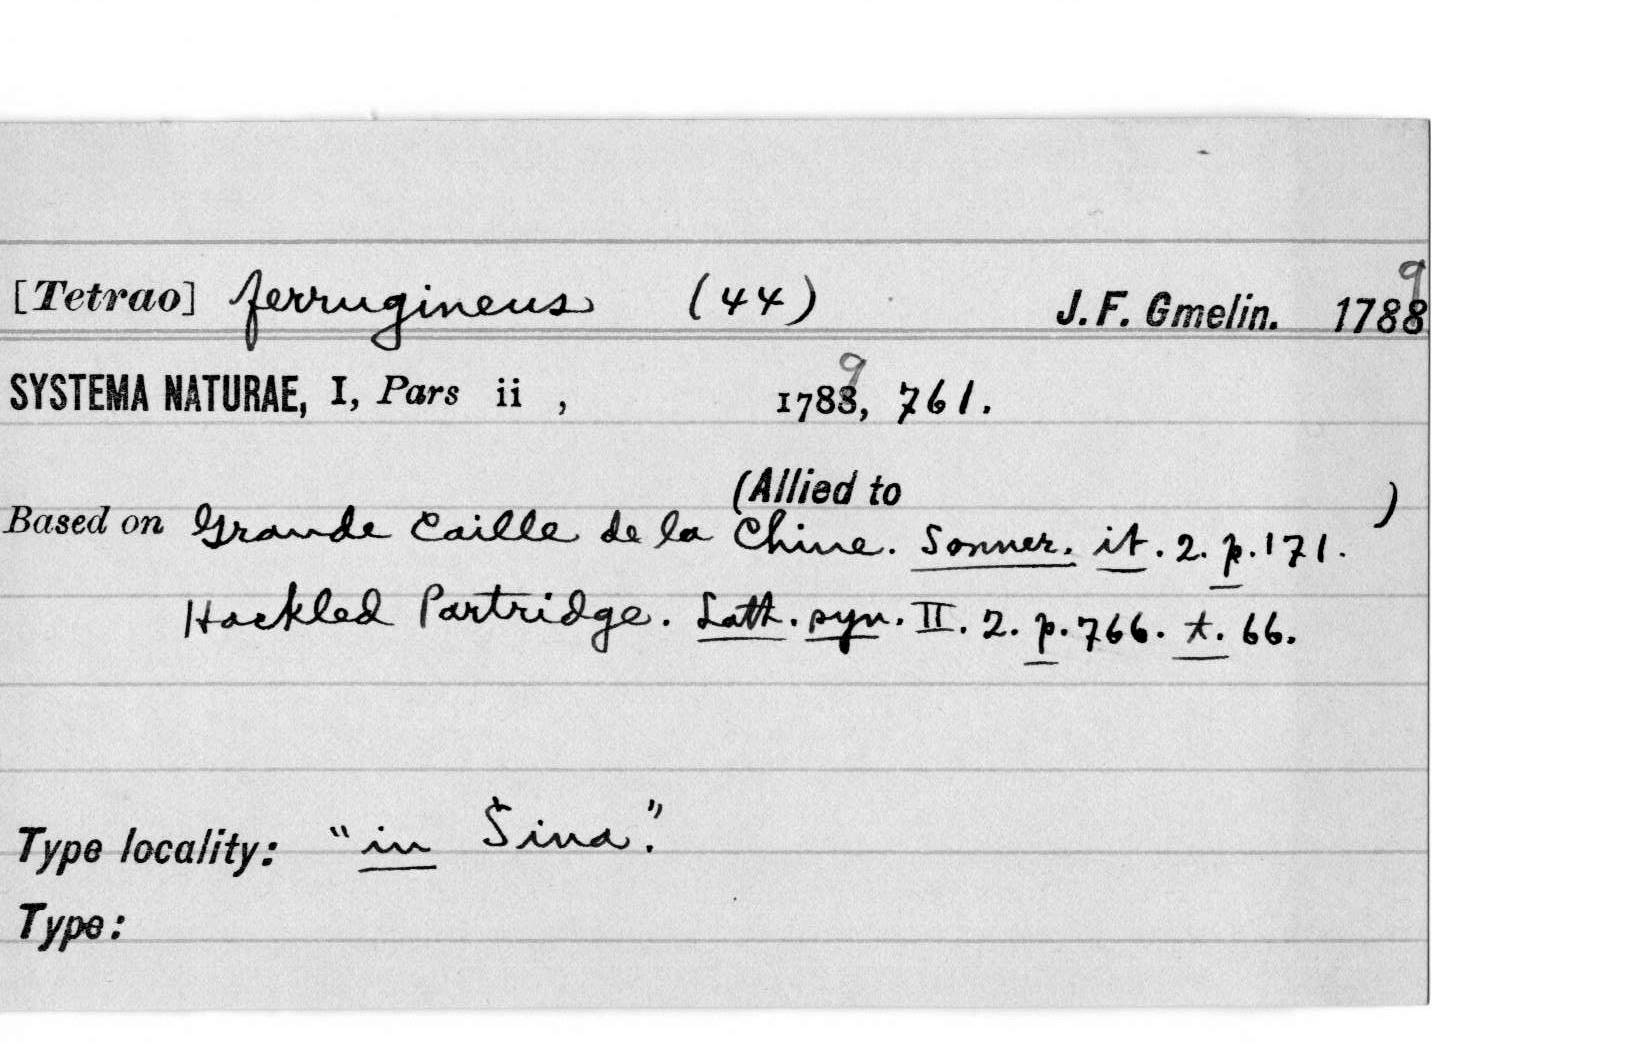 [Tetrao] ferrugineus (44) J. F. Gmelin. 1788 9
SYSTEMA NATURAE, I, Pars ii , 1788 9, 761.
(Allied to )
Based on Grande Caille de la Chine. Sonner. it. 2. p. 171.
Hackled Partridge. Lath. syn. II. 2. p. 766. t. 66.
Type locality: "in Sina".
Type: